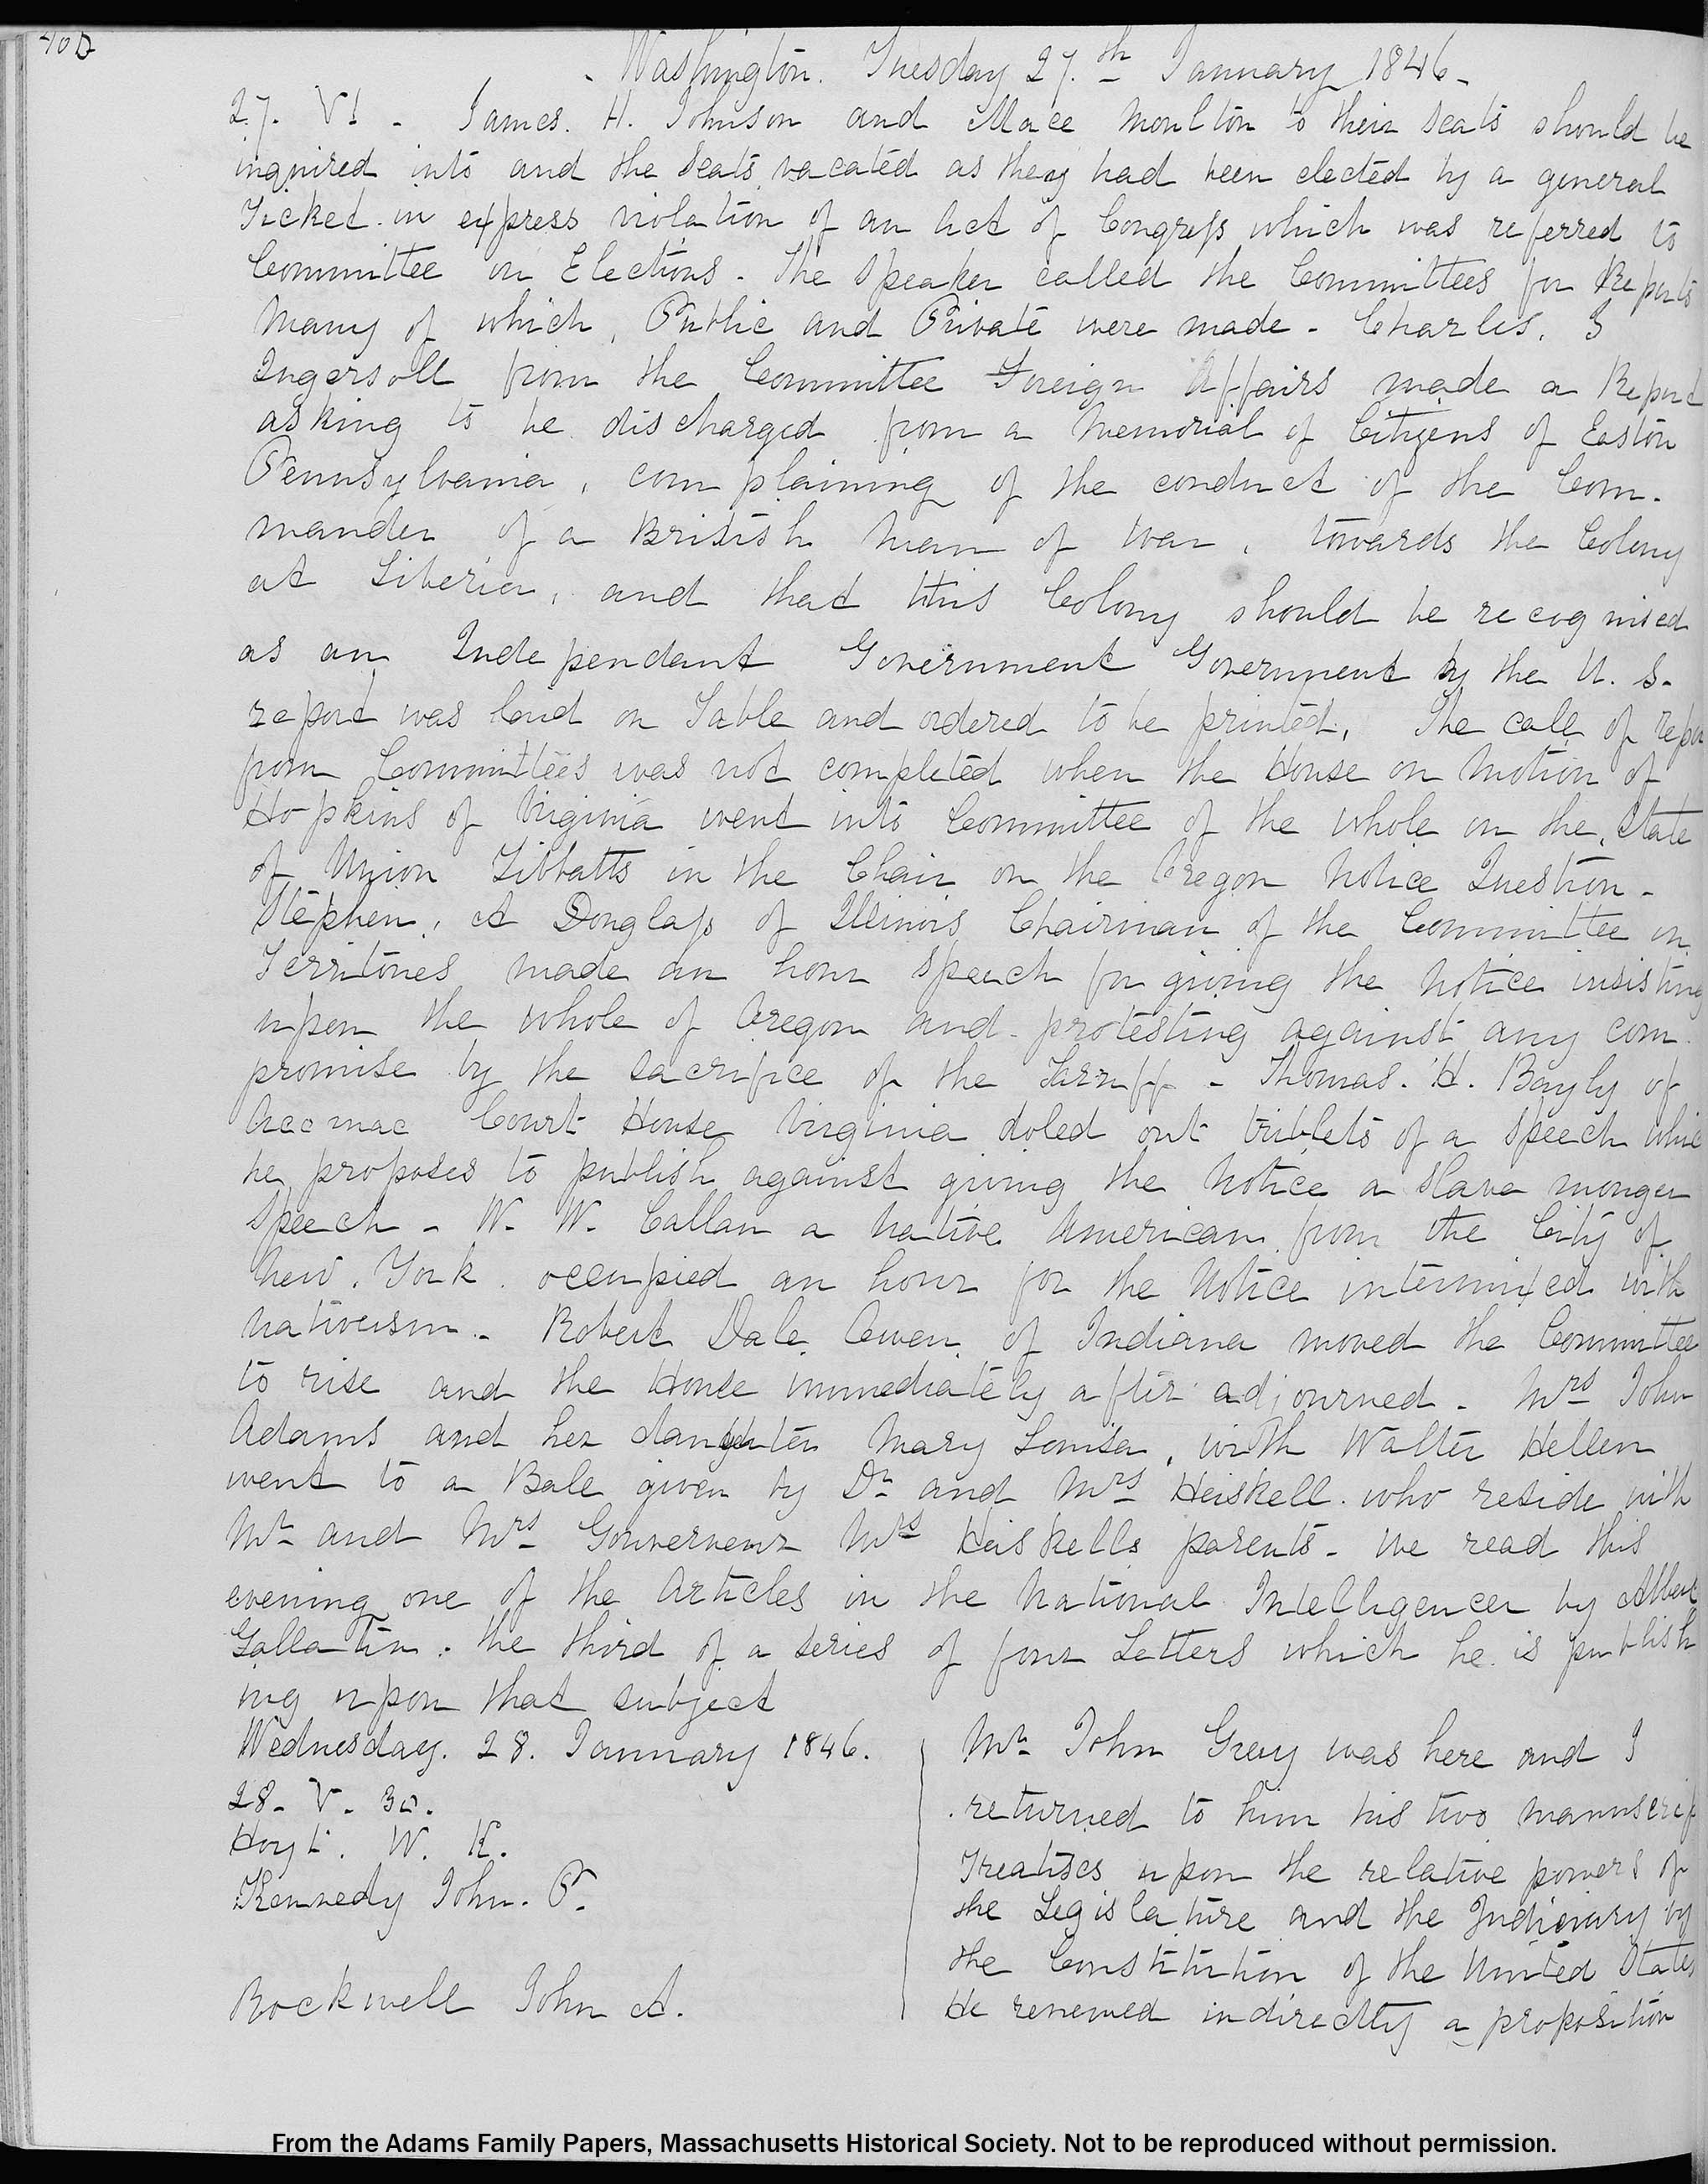 400
Washington. Tuesday 27.th January 1846-
27. VI - James. H. Johnson and Mace Moulton to their seats should be
inquired into and the seats vacated as they had been elected by a general
Ticket in express violation of an Act of Congress which was referred to
Committee on Elections - The Speaker called the Committees for Reports
Many of which, Public and Private were made - Charles. J
Ingersoll from the Committee Foreign Affairs made a Report
asking to be discharged from a Memorial of Citizens of Easton
Pennsylvania, complaining of the conduct of the Com-
mander of a British Man of War, towards the Colony
at Liberia, and that this Colony should be recognised
as an Independant Government Government by the U. S-
report was laid on Table and ordered to be printed, The call of repor
from Committees was not completed when the House on Motion of
Hopkins of Virginia went into Committee of the whole on the State
of Union Tibbatts in the Chair on the Oregon Notice Question-
Stephen, A Douglass of Illinois Chairman of the Committee on
Territories made an hour speech for giving the Notice insisting
upon the whole of Oregon and protesting against any com
promise by the sacrifice of the Tarriff - Thomas. H. Bayly of
Accomac Court House Virginia doled out triblets of a speech whic
he proposes to publish against giving the Notice a slave monger
speech - W. W. Callan a Native American from the City of
New. York occupied an hour for the Notice intermixed with
Nativeism - Robert Dale Owen of Indiana moved the Committee
to rise and the House immediately after adjourned - Mrs John
Adams and her daughter Mary Louisa, with Walter Hellen
went to a Bale given by Dr and Mrs Heiskell who reside with
Mr and Mrs Gouverneur Mrs Heiskells parents - We read this
evening one of the Articles in the National Intelligencer by Albert
Gallatin. the third of a series of four Letters which he is publish
ing upon that subject
Wednesday. 28. January 1846.
28. V. 30.
Hoyt. W. K.
Kennedy John. P.
Rockwell John A.
Mr John Grey was here and I
returned to him his two manuscrip
Treatises upon the relative powers of
the Legislature and the Judiciary by
the Constitution of the United States
He renewed indirectly a proposition
From the Adams Family Papers, Massachusetts Historical Society. Not to be reproduced without permission.